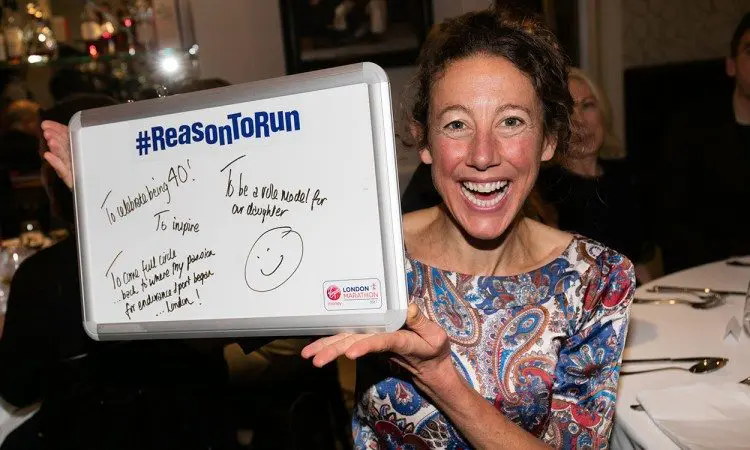 #ReasonToRun
To celebrate being 40!
To inspire
To be a role model for
our daughter
To come full circle
back to where my passion
for endurance sport began
... London!
Virgin
money
LONDON
MARATHON